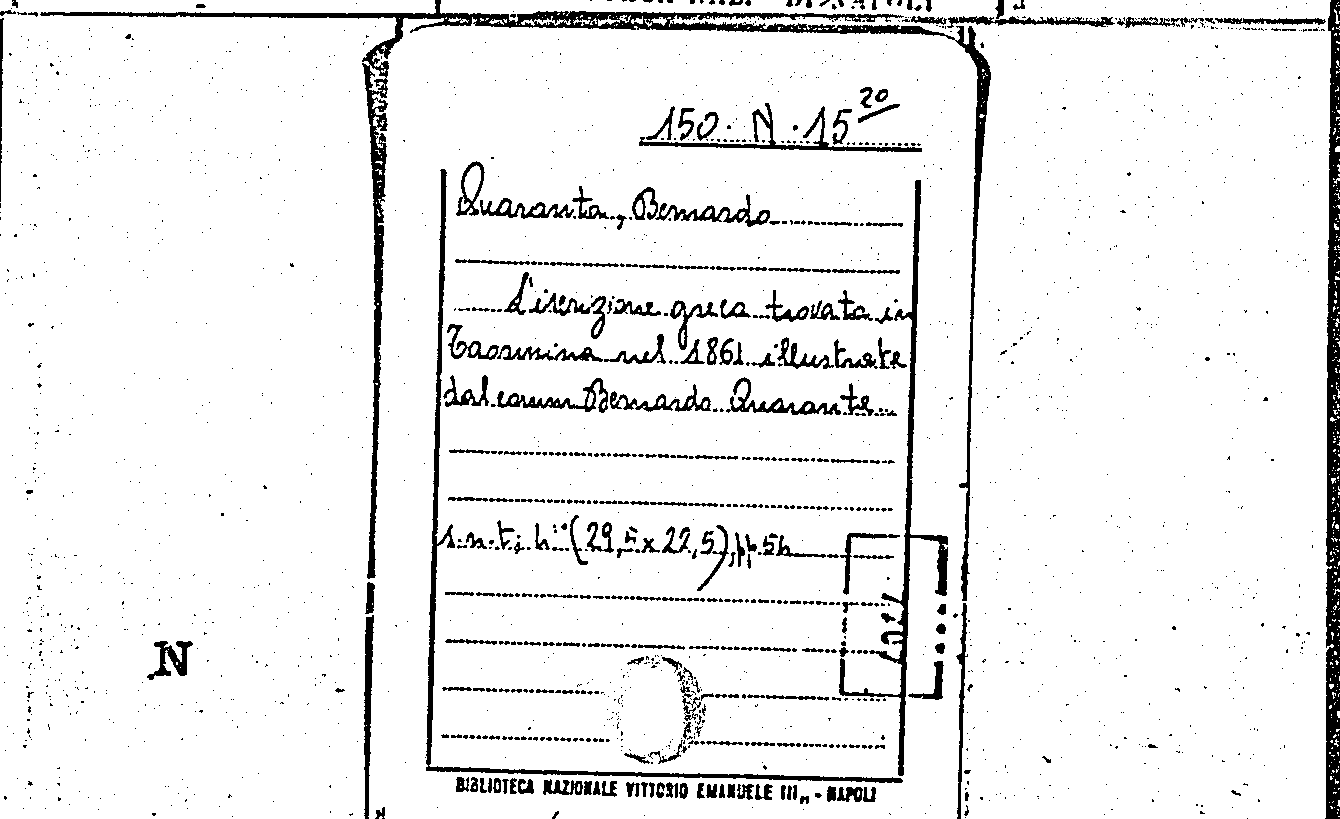 DI NAPOLI
150. N. 15 20
Quaranta, Bernardo
L'iscrizione greca trovata in
Taormina nel 1861 illustrate
dal comm Bernardo Quarante
s.n.t; 4° (29,5 x 22,5), pp. 54
N
BIBLIOTECA NAZIONALE VITTORIO EMANUELE III, - NAPOLI